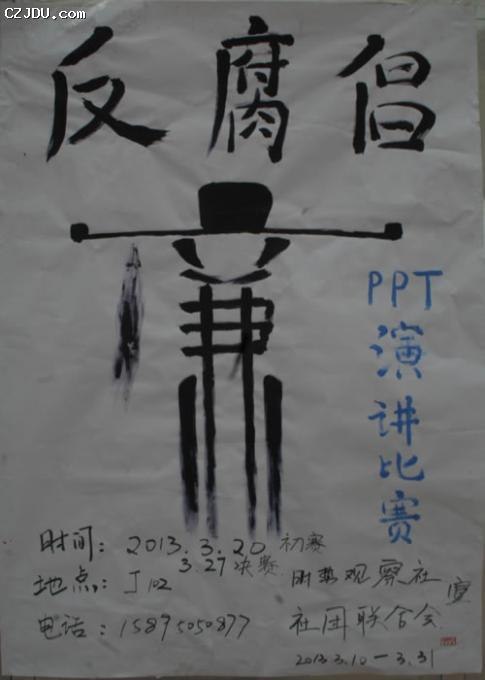 CZJDU.COM
反腐倡
廉
PPT演讲比赛
时间：2013.3.20 初赛
3.27 决赛
地点：J102
电话：15895050877
时事观察社
社团联合会
宣
2013.3.10—3.31